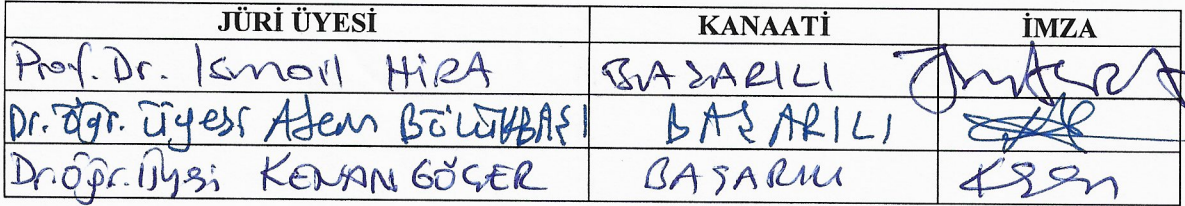 JÜRİ ÜYESİ KANAATİ İMZA
Prof. Dr. Ismail HİRA BAŞARILI
Dr. Öğr. Üyesi Adem BÖLÜKBAŞI BAŞARILI
Dr. Öğr. Üyesi KENAN GÖÇER BAŞARILI